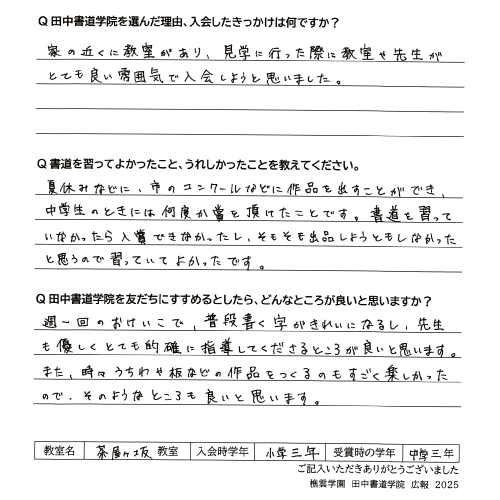 Q 田中書道学院を選んだ理由、入会したきっかけは何ですか？
家の近くに教室があり、見学に行った際に教室や先生が
とても良い雰囲気で入会しようと思いました。
Q 書道を習ってよかったこと、うれしかったことを教えてください。
夏休みなどに、市のコンクールなどに作品を出すことができ、
中学生のときには何度か賞を頂けたことです。書道を習って
いなかったら入賞できなかったし、そもそも出品しようともしなかった
と思うので習っていてよかったです。
Q 田中書道学院を友だちにすすめるとしたら、どんなところが良いと思いますか？
週一回のおけいこで、普段書く字がきれいになるし、先生
も優しくとても的確に指導してくださるところが良いと思います。
また、時々うちわや板などの作品をつくるのもすごく楽しかった
ので、そのようなところも良いと思います。
教室名 茶屋ヶ坂 教室 入会時学年 小学三年 受賞時の学年 中学三年
ご記入いただきありがとうございました
樵雲学園 田中書道学院 広報 2025